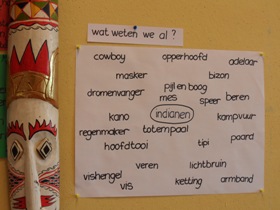 wat weten we al ?
cowboy opperhoofd adelaar
masker bizon
dromenvanger pijl en boog
mes speer beren
kano indianen kampvuur
regenmaker totempaal
hoofdtooi tipi paard
veren lichtbruin
vishengel vis ketting armband